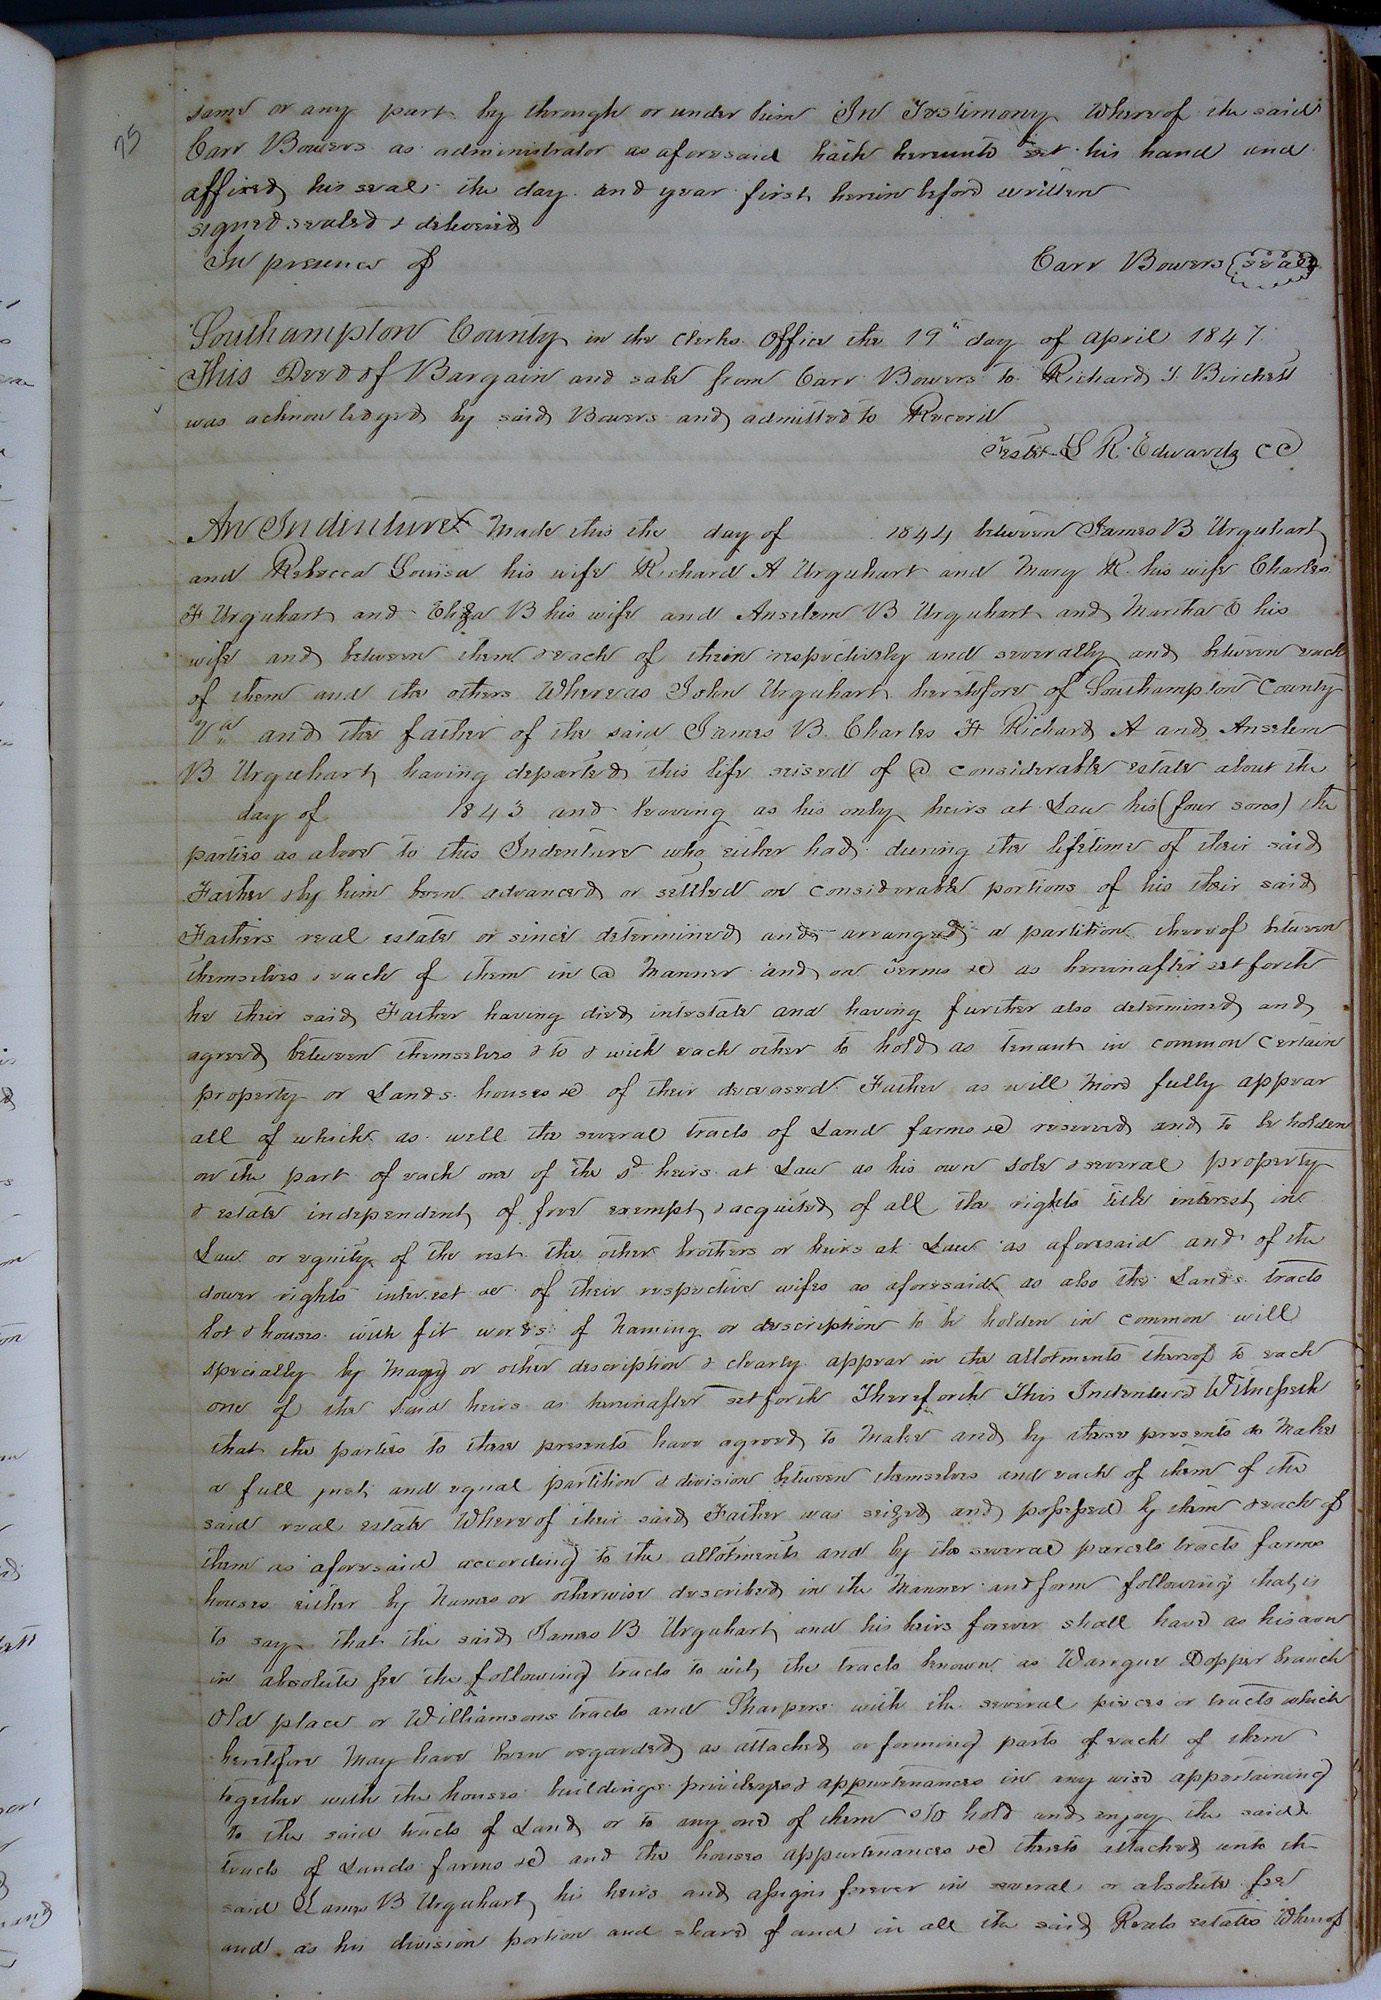 75
same or any part by through or under him In Testimony Whereof the said
Carr Bowers as administrator as aforesaid hath hereunto set his hand and
affixed his seal the day and year first herein before written
signed sealed & delivered
In presence of Carr Bowers {seal}
Southampton County in the Clerks Office the 19" day of April 1847.
This Deed of Bargain and sale from Carr Bowers to Richard T. Birchett
was acknowledged by said Bowers and admitted to Record
Teste L R. Edwards CC
An Indenture Made this the day of 1844 between James B Urquhart
and Rebecca Louisa his wife Richard A Urquhart and Mary R. his wife Charles
F Urquhart and Eliza B his wife and Anselem B Urquhart and Martha his
wife and between them & each of them respectively and severally and between each
of them and the others Whereas John Urquhart heretofore of Southampton County
Va and the father of the said James B. Charles F Richard A and Anselem
B Urquhart having departed this life seised of a considerable estate about the
day of 1843 and leaving as his only heirs at Law his (four sons) the
parties as above to this Indenture who either had during the lifetime of their said
Father & by him been advanced or settled on considerable portions of his their said
Fathers real estate or since determined and arranged a partition thereof between
themselves & each of them in a Manner and on Terms &c as hereinafter set forth
he their said Father having died intestate and having further also determined and
agreed between themselves & to & with each other to hold as tenant in common Certain
property or Lands houses &c of their deceased Father as will More fully appear
all of which as well the several tracts of Land farms &c reserved and to be holden
on the part of each one of the sd heirs at Law as his own sole & several property
& estate independent of free exempt & acquited of all the rights title interest in
Law or equity of the rest the other brothers or heirs at Law as aforesaid and of the
dower rights interest &c of their respective wifes as aforesaid as also the Lands tracts
Lot & houses with fit words of Naming or description to be holden in common will
specially by or other description & clearly appear in the allotments thereof to each
one of the said heirs as hereinafter set forth Thereforth This Indenture Witnesseth
that the parties to these presents have agreed to Make and by these presents do Make
a full just and equal partition & division between themselves and each of them of the
said real estate Whereof their said Father was seized and possessed by them & each of
them as aforesaid according to the allotments and by the several parcels tracts farms
houses either by Names or otherwise described in the Manner and form following that is
to say that the said James B Urquhart and his heirs forever shall have as his own
in absolute fee the following tracts to wit the tracts known as Warrque Dopper branch
Old place or Williamsons tracts and Sharpers with the several pieces or tracts which
heretofore May have been regarded as attached or forming parts of each of them
together with the houses buildings privileges & appurtenances in any wise appertaining
to the said tracts of Land or to any one of them & to hold and enjoy the said
tracts of Lands farms &c and the houses appurtenances &c thereto attached unto the
said James B Urquhart his heirs and assigns forever in several or absolute fee
and as his division portion and share of and in all the said Reals estates Whereof